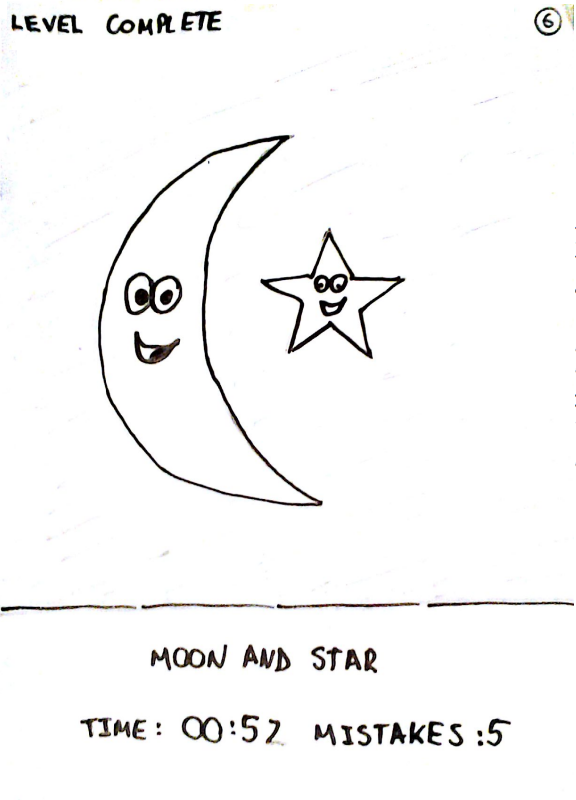 LEVEL COMPLETE 6
MOON AND STAR
TIME: 00:52 MISTAKES :5